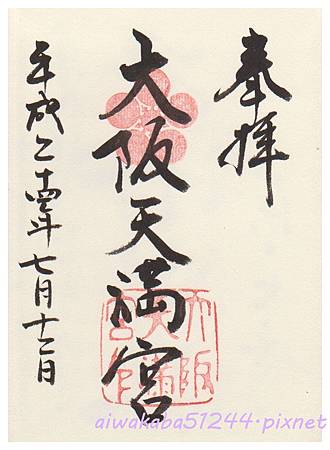 奉拝
大阪天満宮
平成二十四年七月十二日
大阪
天満
宮印
aiwakaba51244.pixnet